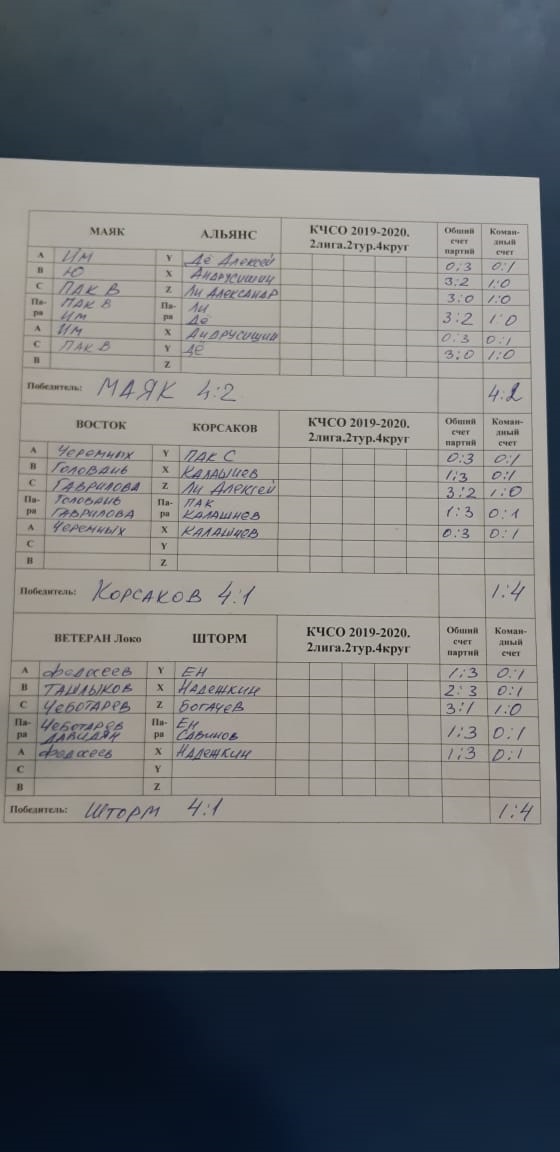 МАЯК АЛЬЯНС КЧСО 2019-2020. 2лига.2тур.4круг Общий счет партий Коман-дный счет
A ИМ Y Дё Алексей 0:3 0:1
B Ю X Андрусишин 3:2 1:0
C ПАК В Z Ли Александр 3:0 1:0
Па-ра ПАК В ИМ Па-ра Ли Дё 3:2 1:0
A ИМ X Андрусишин 0:3 0:1
C ПАК В Y Дё 3:0 1:0
B Z
Победитель: МАЯК 4:2 4:2
ВОСТОК КОРСАКОВ КЧСО 2019-2020. 2лига.2тур.4круг Общий счет партий Коман-дный счет
A Черемных Y ПАК С 0:3 0:1
B Головань X Калашнев 1;3 0:1
C Гаврилова Z Ли Алексей 3:2 1:0
Па-ра Головань Гаврилова Па-ра ПАК Калашнев 1:3 0:1
A Черемных X Калашнев 0:3 0:1
C Y
B Z
Победитель: Корсаков 4:1 1:4
ВЕТЕРАН Локо ШТОРМ КЧСО 2019-2020. 2лига.2тур.4круг Общий счет партий Коман-дный счет
A Y ЕН 1:3 0:1
B ТАШЛЫКОВ X Надежкин 2:3 0:1
C Чеботарев Z Богачев 3:1 1:0
Па-ра Чеботарев Давидян Па-ра Ен Савинов 1:3 0:1
A X Надежкин 1:3 0:1
C Y
B Z
Победитель: Шторм 4:1 1:4